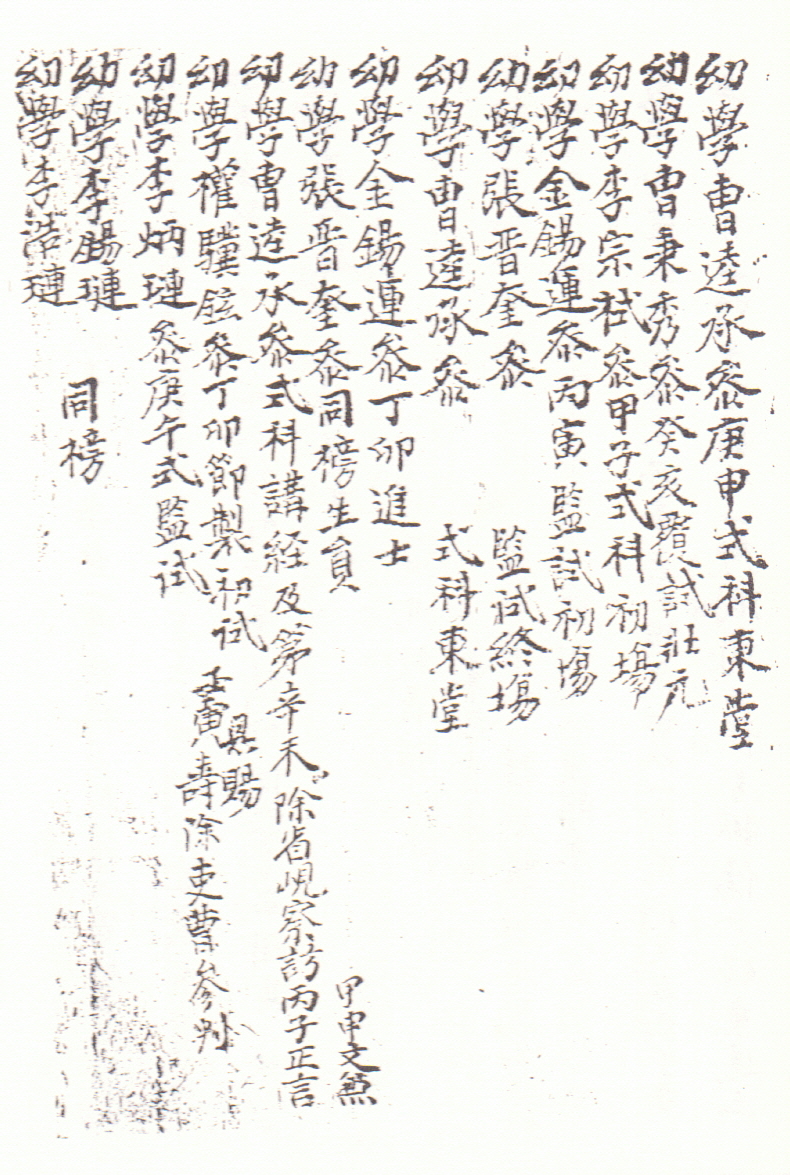 幼學曺逵承參庚申式科東堂
幼學曺秉秀參癸亥覆試壯元
幼學李宗栻參甲子式科初場
幼學金錫運參丙寅監試初塲
幼學張晋奎參 監试終塲
幼學曺逵承參 式科東堂
幼學金錫運參丁卯進士
幼學張晋奎參同榜生員
甲申文兼
幼學曺逵承參式科講経及第辛未除省峴察訪丙子正言
幼學權驥鉉參丁卯節製初试
壬寅壽除吏曹參判
賜
幼學李炳璉參庚午式監试
幼學李錫璉 同榜
幼學李浩璉